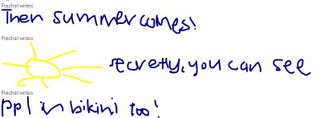 Rachel writes:
Then summer comes!
Rachel writes:
secretly, you can see
Rachel writes:
ppl in bikini too!